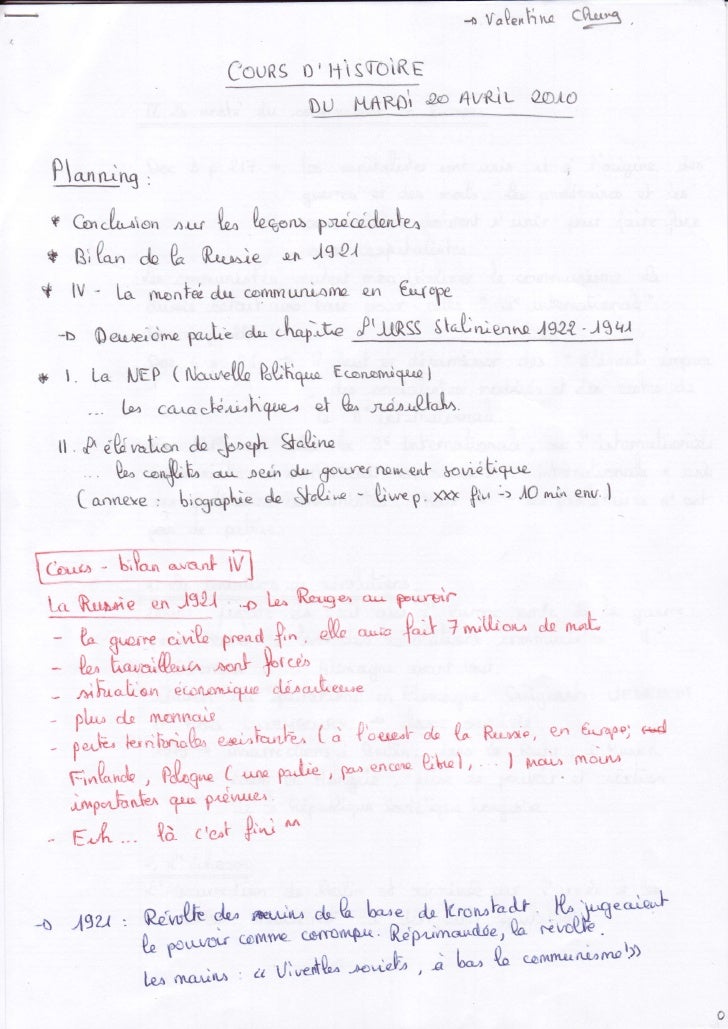 → Valentine Cheung.
COURS D'HISTOIRE
DU MARDI 20 AVRIL 2010
Planning :
* Conclusion sur les leçons précédentes
* Bilan de la Russie en 1921
* IV - La montée du communisme en Europe
→ Deuxième partie du chapitre L'URSS Stalinienne 1922-1941
* I. La NEP (Nouvelle Politique Economique)
... les caractéristiques et les résultats.
II. L'élévation de Joseph Staline
... les conflits au sein du gouvernement soviétique
(annexe : biographie de Staline - livre p. xxx fin → 10 min env.)
Cours - bilan avant IV
La Russie en 1921 → Les Rouges au pouvoir
- la guerre civile prend fin, elle aura fait 7 millions de morts
- les travailleurs sont forcés
- situation économique désastreuse
- plus de monnaie
- pertes territoriales existantes (à l'ouest de la Russie, en Europe;
Finlande, Pologne (une partie, pas encore libre), ...) mais moins
importantes que prévues.
- Euh ... là c'est fini ^^
→ 1921 : Révolte des marins de la base de Kronstadt. Ils jugeaient
le pouvoir comme corrompu. Réprimandée, la révolte.
Les marins : « Vivent les soviets, à bas le communisme!»